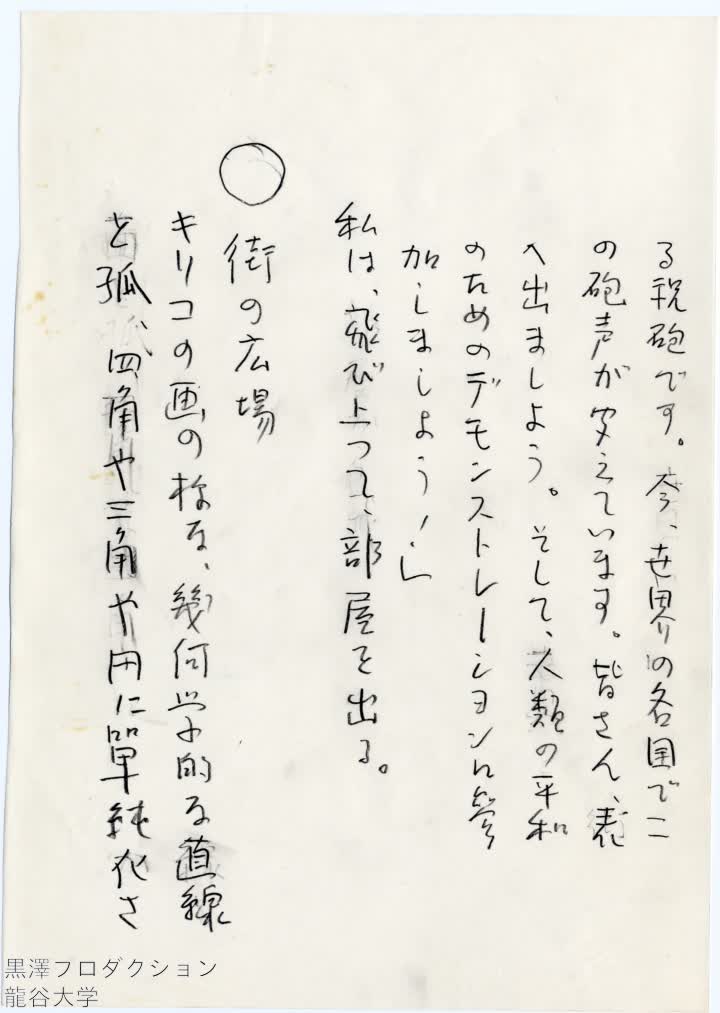 る祝砲です。今、世界の各国でこ
の砲声が変えています。皆さん、表
へ出ましよう。そして、人類の平和
のためのデモンストレーションに参
加しましよう！」
私は、飛び上つて、部屋を出る。
○
街の広場
キリコの画の様な、幾何学的な直線
と孤、四角や三角や円に單純化さ
黒澤プロダクション
龍谷大学